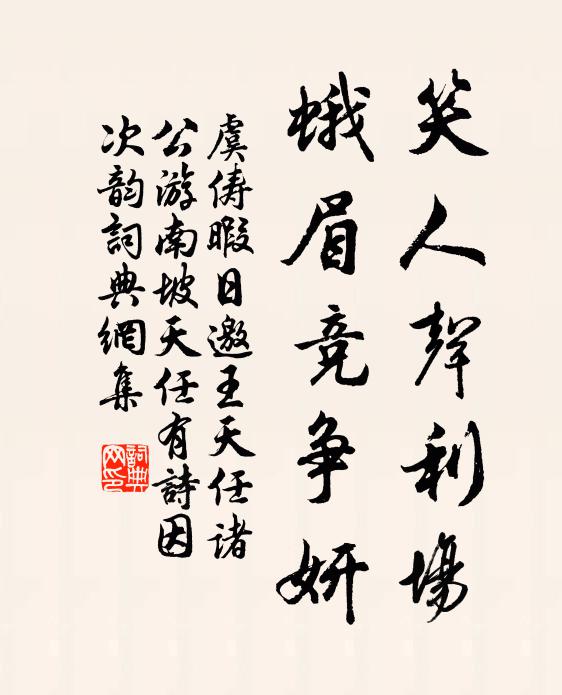 笑人聲利場
蛾眉竞争妍
虞俦暇日邀王天任诸
公游南坡天任有詩因
次韵詞典網集
詞典
网印